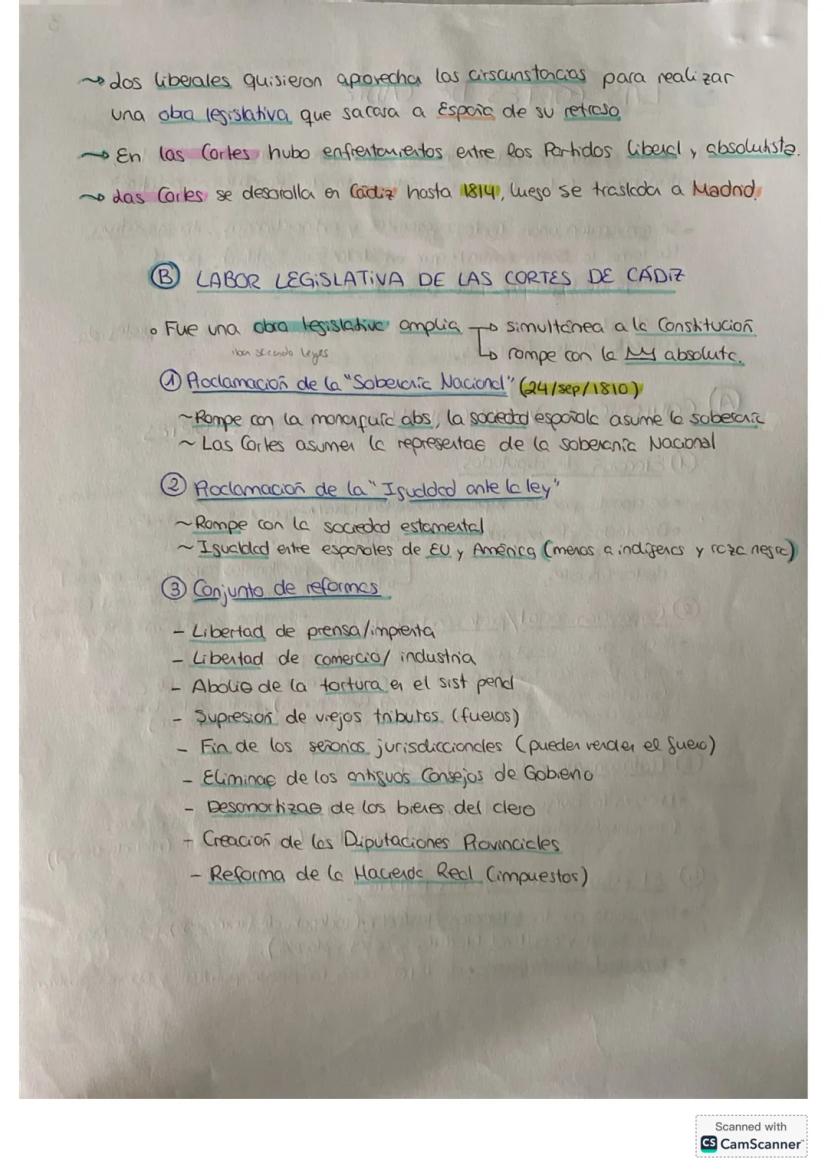 ~> Los liberales quisieron aprovechar las circunstancias para realizar
una obra legislativa que sacara a España de su retraso
~> En las Cortes hubo enfrentamientos entre los Partidos liberal y absolutista.
~> Las Cortes se desarolla en Cádiz hasta 1814, luego se trasladan a Madrid.
Ⓑ LABOR LEGISLATIVA DE LAS CORTES DE CÁDIZ
◦ Fue una obra legislativa amplia → simultánea a la Constitución
iban sacando leyes ↳ rompe con la absoluta.
① Proclamación de la "Soberanía Nacional" (24/sep/1810)
~ Rompe con la monarquía abs, la sociedad española asume la soberanía
~ Las Cortes asumen la representac de la soberanía Nacional
② Proclamación de la "Igualdad ante la ley"
~ Rompe con la sociedad estamental
~ Igualdad entre españoles de EU y América (menos a indígenas y raza negra)
③ Conjunto de reformas
- Libertad de prensa/imprenta
- Libertad de comercio/ industria
- Abolic de la tortura en el sist penal
- Supresión de viejos tributos (fueros)
- Fin de los señoríos jurisdiccionales (pueden vender el fuero)
- Eliminac de los antiguos Consejos de Gobierno
- Desamortizac de los bienes del clero
- Creación de las Diputaciones Provinciales
- Reforma de la Hacienda Real (impuestos)
Scanned with
CS CamScanner